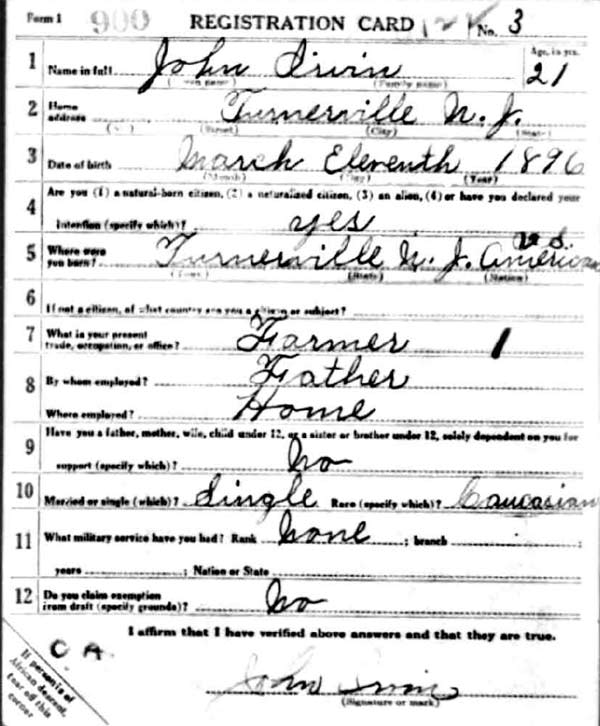 Form 1 900 REGISTRATION CARD 124 No. 3
1 Name in full John Irvin Age, in yrs. 21
(Given name) (Family name)
2 Home address Turnerville N. J.
(No.) (Street) (City) (State)
3 Date of birth March Eleventh 1896
(Month) (Day) (Year)
4 Are you (1) a natural-born citizen, (2) a naturalized citizen, (3) an alien, (4) or have you declared your
intention (specify which)? yes
5 Where were you born? Turnerville N. J. America U.S.
(Town) (State) (Nation)
6 If not a citizen, of what country are you a citizen or subject?
7 What is your present trade, occupation, or office? Farmer 1
8 By whom employed? Father
Where employed? Home
9 Have you a father, mother, wife, child under 12, or a sister or brother under 12, solely dependent on you for
support (specify which)? No
10 Married or single (which)? Single Race (specify which)? Caucasian
11 What military service have you had? Rank None ; branch ;
years ; Nation or State
12 Do you claim exemption from draft (specify grounds)? No
I affirm that I have verified above answers and that they are true.
C A
If person is of
African descent,
tear off this
corner
John Irvin
(Signature or mark)